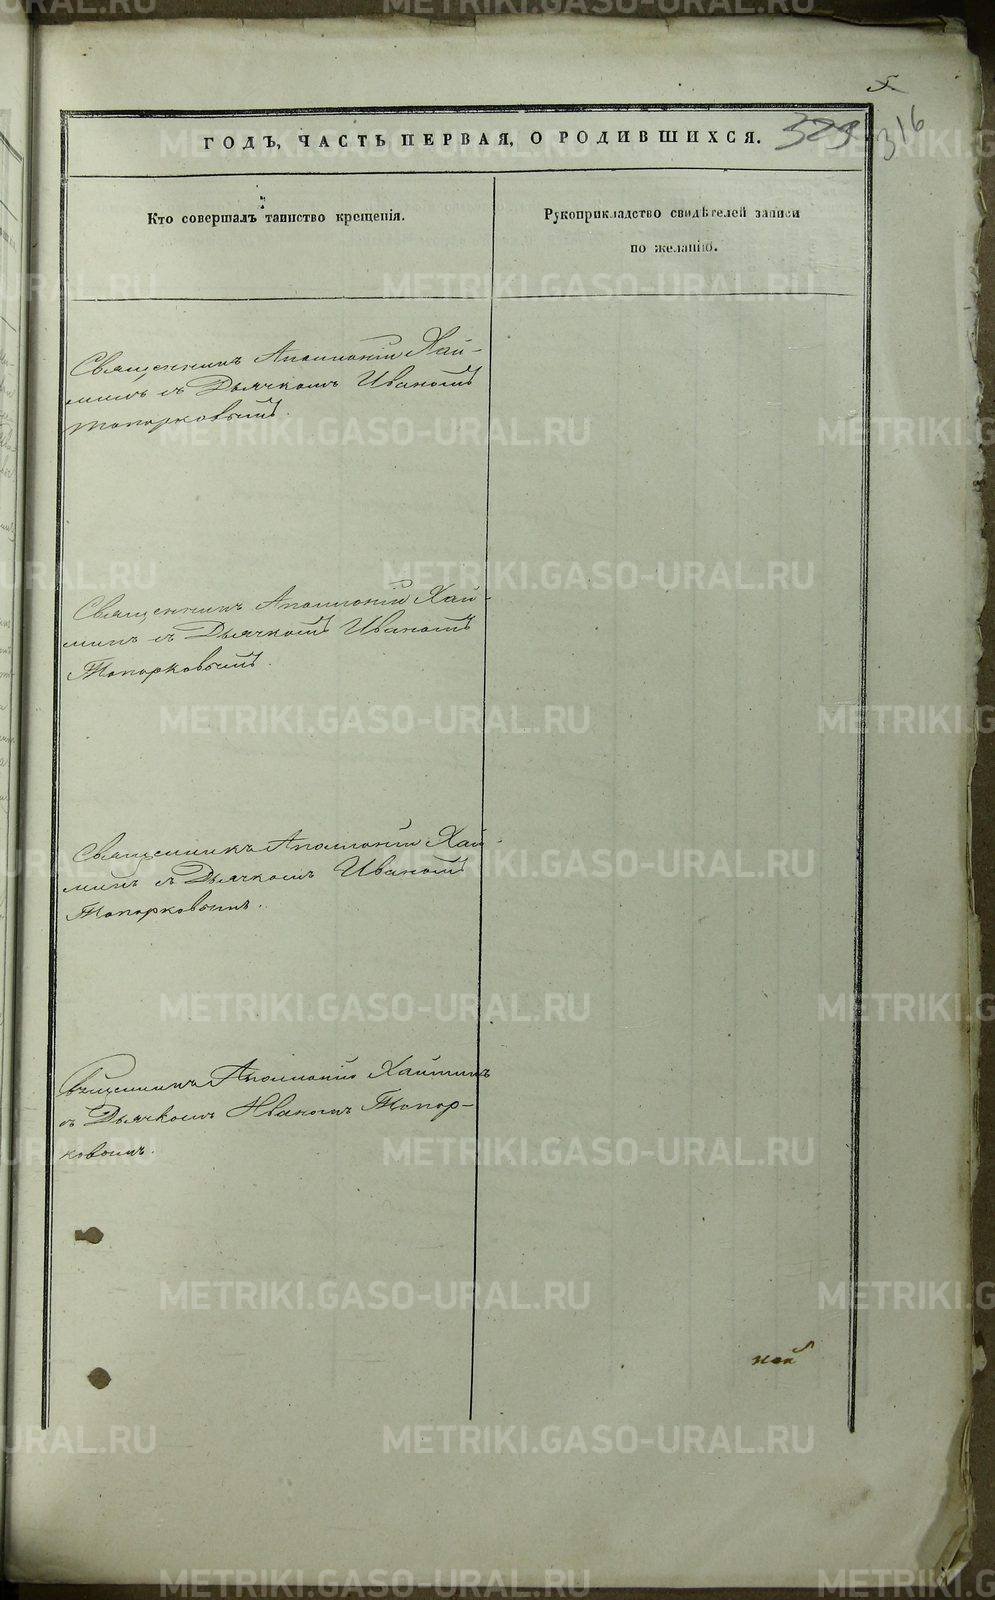 5
ГОДЪ, ЧАСТЬ ПЕРВАЯ, О РОДИВШИХСЯ.
323 316
Кто совершалъ таинство крещенія.
Рукоприкладство свидѣтелей записи
по желанію.
Священникъ Аполлоній Хай-
минъ съ Дьячкомъ Иваномъ
Топорковымъ.
Священникъ Аполлоній Хай-
минъ съ Дьячкомъ Иваномъ
Топорковымъ.
Священникъ Аполлоній Хай-
минъ съ Дьячкомъ Иваномъ
Топорковымъ.
Священникъ Аполлоній Хайминъ
съ Дьячкомъ Иваномъ Топор-
ковымъ.
METRIKI.GASO-URAL.RU